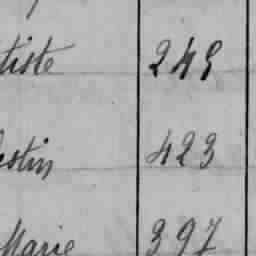 tiste 248
estin 423
Marie 397